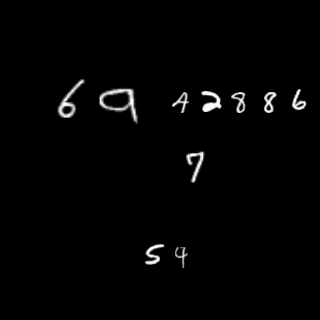 69 42886
7
54